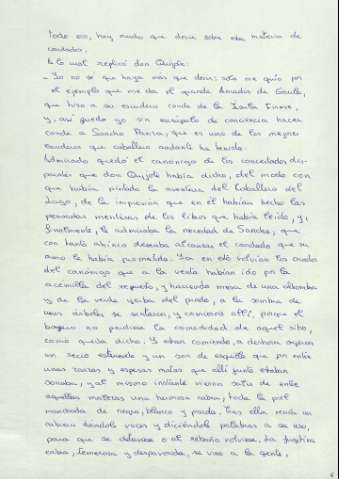 todo eso, hay mucho que decir sobre esta materia de
condados.
A lo cual replicó don Quijote:
- Yo no sé que haya más que decir; sólo me guío por
el ejemplo que me da el grande Amadís de Gaula,
que hizo a su escudero conde de la Ínsula Firme,
y, así puedo yo sin escrúpulo de conciencia hacer
conde a Sancho Panza, que es uno de los mejores
escuderos que caballero andante ha tenido.
Admirado quedó el canónigo de los concertados dis-
parates que don Quijote había dicho, del modo con
que había pintado la aventura del Caballero del
Lago, de la impresión que en él habían hecho las
pensadas mentiras de los libros que había leído, y,
finalmente, le admiraba la necedad de Sancho, que
con tanto ahínco deseaba alcanzar el condado que su
amo le había prometido. Ya en esto volvían los criados
del canónigo que a la venta habían ido por la
acémila del repuesto, y haciendo mesa de una alhombra
y de la verde yerba del prado, a la sombra de
unos árboles se sentaron, y comieron allí, porque el
boyero no perdiese la comodidad de aquel sitio,
como queda dicho. Y estan comiendo, a deshora oyeron
un recio estruendo y un son de esquila que por entre
unas zarzas y espesas matas que allí junto estaban
sonaba, y al mismo instante vieron salir de entre
aquellas malezas una hermosa cabra, toda la piel
manchada de negro, blanco y pardo. Tras ella venía un
cabrero dándole voces y diciéndole palabras a su uso,
para que se detuviese o al rebaño volviese. La fugitiva
cabra, temerosa y despavorida, se vino a la gente,